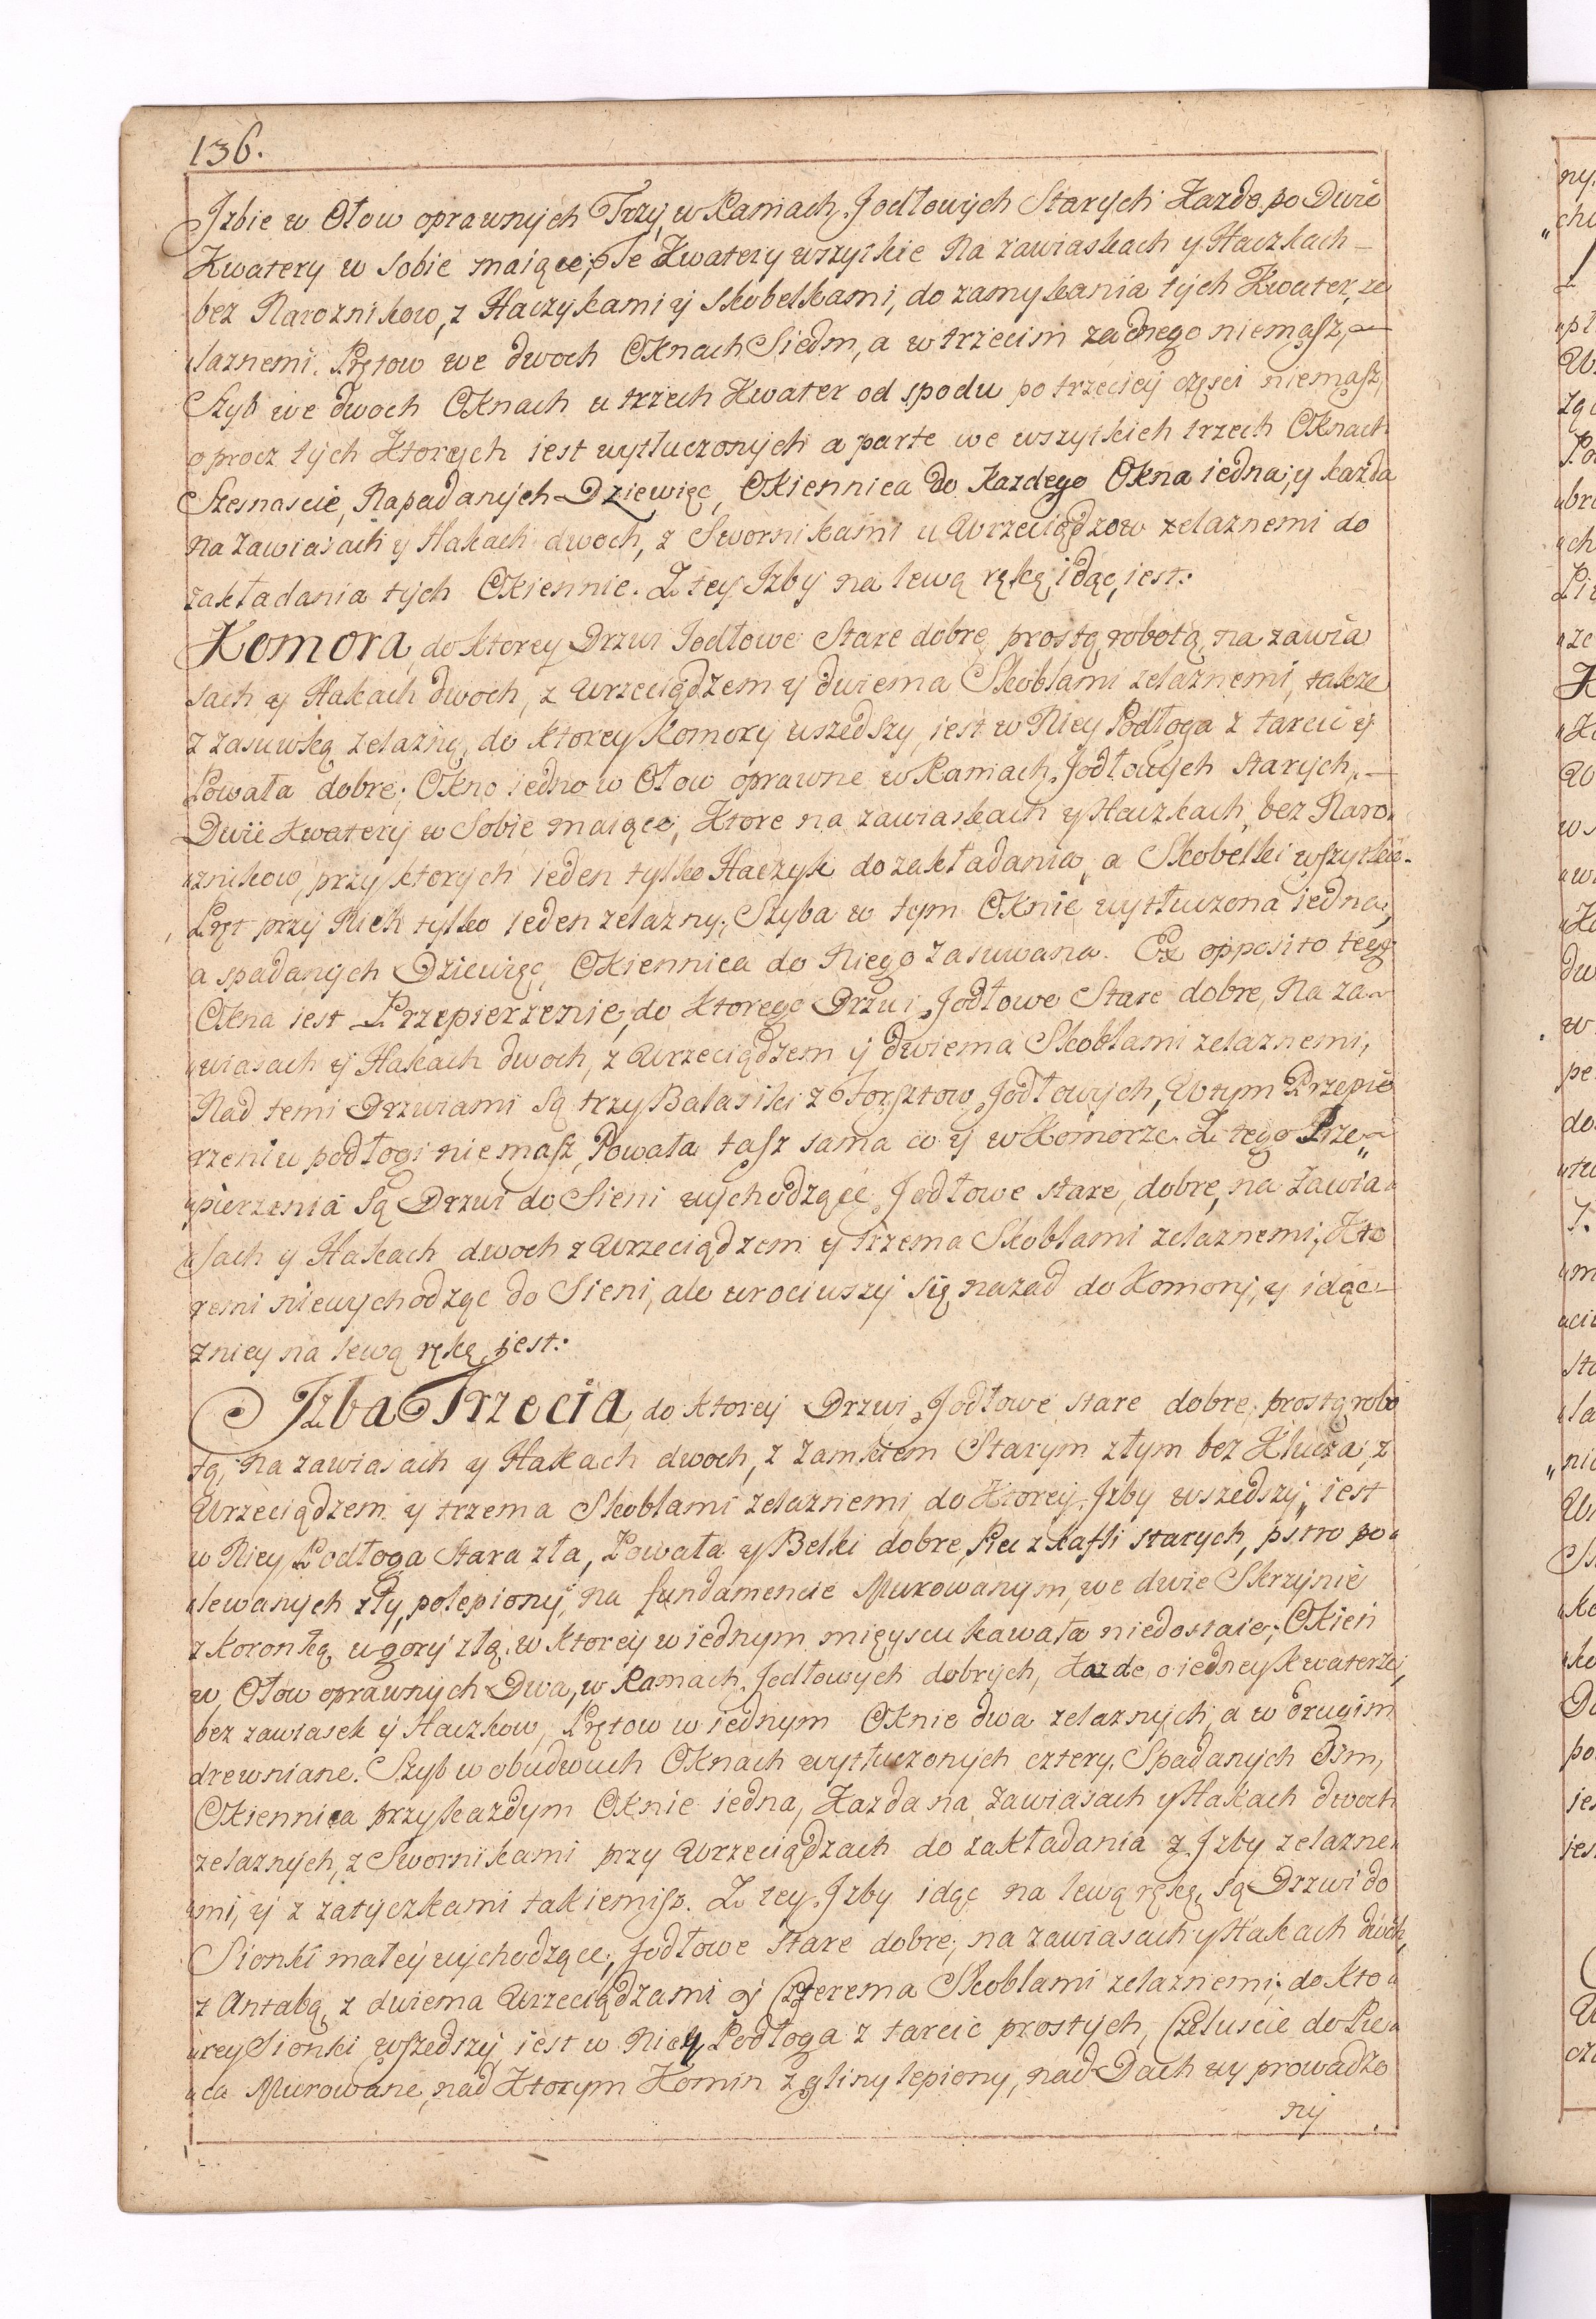 136.
Jzbie w Ołow oprawnych Trzy, w Ramach Jodłowych Starych Kazde po Dwie
Kwatery w sobie maiące, Te Kwatery wszytkie na zawiaskach y Haczkach
bez Naroznikow, z Haczykami y skobelkami, do zamykania tych Kwater, ze
"laznemi. Prętow we dwoch Oknach Siedm, a w trzecim zadnego niemasz,
Szyb we dwoch Oknach u trzech Kwater od spodu po trzeciey częsci niemasz,
oprocz tych Ktorych iest wytłuczonych a parte we wszytkich trzech Oknach
Szesnascie, Napadanych Dziewięc, Okiennica do Kazdego Okna iedna, y kazda
na zawiasach y Hakach dwoch, z Swornikami u Wrzeciądzow zelaznemi do
zakładania tych Okiennic. Z tey Jzby na lewą rękę idąc, iest.
Komora, do ktorey Drzwi Jodłowe Stare dobre, prostą robotą, na zawia
sach y Hakach dwoch, z Wrzeciądzem y dwiema Skoblami zelaznemi, takze
z zasuwką zelazną, do ktorey Komory wszedszy, iest w Niey Podłoga z tarcic y
Powała dobre; Okno iedno w Ołow oprawne w Ramach Jodłowych starych,
Dwie Kwatery w Sobie maiące, Ktore na zawiaskach y Haczkach, bez Naro,
"znikow, przy ktorych ieden tylko Haczyk do zakładania, a Skobelki wszytkie.
Pręt przy Nich tylko ieden zelazny, Szyba w tym Oknie wytłuczona iedna,
a spadanych Dziewięc, Okiennica do Niego zasuwana. Ex opposito tego
Okna iest Przepierzenie, do ktorego Drzwi Jodłowe Stare dobre, na za
"wiasach y Hakach dwoch, z Wrzeciądzem y dwiema Skoblami zelaznemi,
Nad temi Drzwiami są trzy Balasiki z Forsztow Jodłowych, W tym Przepie
rzeniu podłogi niemasz, Powała tasz sama co y w Komorze. Z tego Prze"
"pierzenia są Drzwi do Sieni wychodzące, Jodłowe stare, dobre, na zawia"
"sach y Hakach dwoch z Wrzeciądzem y trzema Skoblami zelaznemi, Kto
remi niewychodząc do Sieni, ale wrociwszy się nazad do Komory, y idąc
z niey na lewą rękę, iest.
Jzba Trzecia, do ktorey Drzwi Jodłowe stare dobre, prostą robo
tą, na zawiasach y Hakach dwoch, z Zamkiem Starym złym bez Klucza, z
Wrzeciądzem y trzema Skoblami zelaznemi, do Ktorey Jzby wszedszy, iest
w Niey Podłoga stara zła, Powała y Belki dobre, Piec z kafli starych, pstro po"
"lewanych zły, polepiony, na fundamencie Murowanym, we dwie Skrzynie
z koronką u gory złą, w ktorey w iednym mieyscu kawała niedostaie; Okien
w Ołow oprawnych Dwa, w Ramach Jodłowych dobrych, kazde o iedney kwaterze,
bez zawiasek y Haczkow, Prętow w iednym Oknie dwa zelaznych, a w drugim
drewniane. Szyb w obudwuch Oknach wytłuczonych cztery, Spadanych Osm,
Okiennica przy kazdym Oknie iedna, Kazda na zawiasach y Hakach dwoch
zelaznych, z Swornikami przy Wrzeciądzach do zakładania z Jzby zelazne"
"mi, y z zatyczkami takiemisz. Z tey Jzby idąc na lewą rękę, są Drzwi do
Sionki małey wychodzące, Jodłowe stare dobre, na zawiasach y Hakach dwoch,
z Antabą, z dwiema Wrzeciądzami y Czterema Skoblami zelaznemi, do kto"
"rey Sionki wszedszy iest w Niey Podłoga z tarcic prostych, Czeluscie do Pie"
"ca Murowane, nad Ktorym Komin z gliny lepiony, nad Dach wyprowadzo
ny